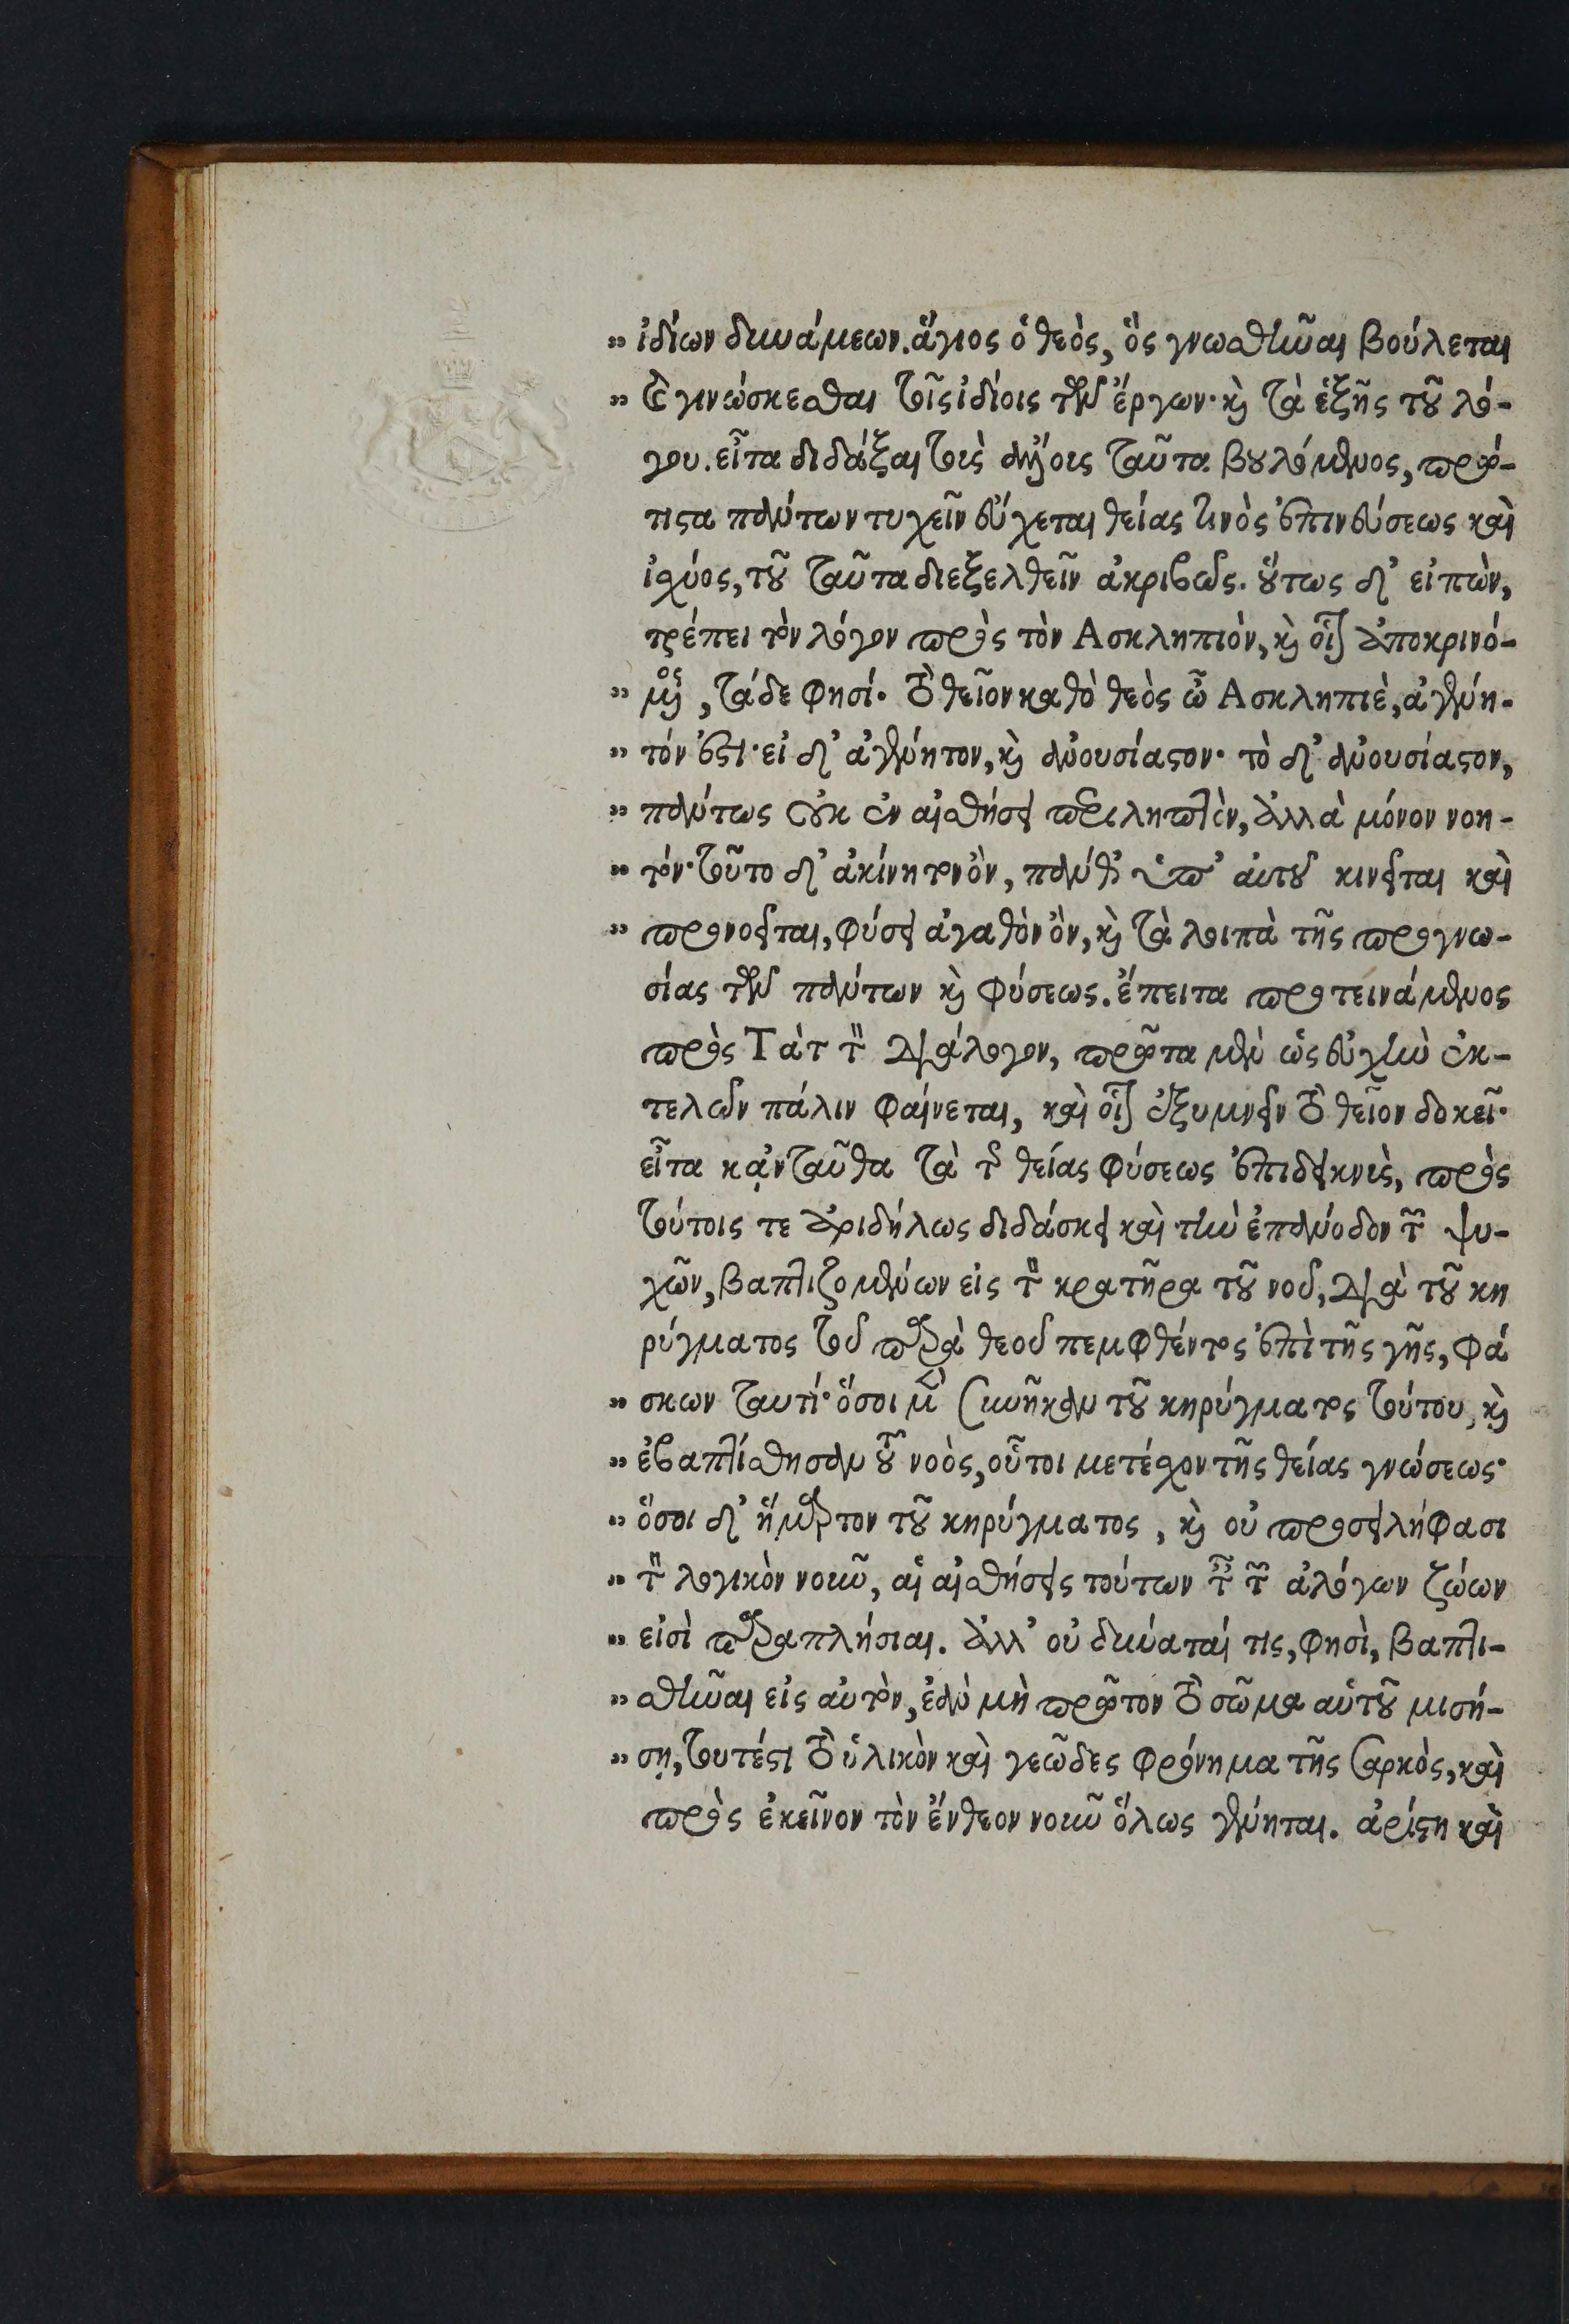 » ἰδίων δυνάμεων. ἅγιος ὁ θεὸς, ὃς γνωσθῆναι βούλεται
» καὶ γινώσκεσθαι τοῖς ἰδίοις τῶν ἔργων· καὶ τὰ ἑξῆς τοῦ λό-
γου. εἶτα διδάξαι τοὺς ταῦτα βουλόμενος, πρώ-
τιστα πάντων τυχεῖν εὔχεται θείας τινὸς ἐπινεύσεως καὶ
ἰσχύος, τοῦ ταῦτα διεξελθεῖν ἀκριβῶς. οὕτως δ' εἰπὼν,
τρέπει τὸν λόγον πρὸς τὸν Ασκληπιὸν, καὶ οἷον ἀποκρινό-
» μενος, τάδε φησί· τὸ θεῖον καθὸ θεὸς ὦ Ασκληπιὲ, ἀγένη-
» τόν ἐστι· εἰ δ' ἀγένητον, καὶ ἀνουσίαστον· τὸ δ' ἀνουσίαστον,
» πάντως οὐκ ἐν αἰσθήσει περιληπτὸν, ἀλλὰ μόνον νοη-
» τόν· τοῦτο δ' ἀκίνητον ὂν, πάνθ' ὑπ' αὐτοῦ κινεῖται καὶ
» προνοεῖται, φύσει ἀγαθὸν ὂν, καὶ τὰ λοιπὰ τῆς προγνω-
σίας τῶν πάντων καὶ φύσεως. ἔπειτα προτεινάμενος
πρὸς Τὰτ τὸν διάλογον, πρῶτα μὲν ὡς εὐχὴν ἐκ-
τελῶν πάλιν φαίνεται, καὶ οἷον ἐξυμνεῖν τὸ θεῖον δοκεῖ·
εἶτα κᾀνταῦθα τὰ τῆς θείας φύσεως ἐπιδεικνὺς, πρὸς
τούτοις τε ἀριδήλως διδάσκει καὶ τὴν ἐπάνοδον τῶν ψυ-
χῶν, βαπτιζομένων εἰς τὸν κρατῆρα τοῦ νοῦ, διὰ τοῦ κη
ρύγματος τοῦ παρὰ θεοῦ πεμφθέντος ἐπὶ τῆς γῆς, φά
» σκων ταυτί· ὅσοι μὲν συνῆκαν τοῦ κηρύγματος τούτου, καὶ
» ἐβαπτίσθησαν τοῦ νοὸς, οὗτοι μετέσχον τῆς θείας γνώσεως·
» ὅσοι δ' ἥμαρτον τοῦ κηρύγματος, καὶ οὐ προσειλήφασι
» τὸν λογικὸν νοῦν, αἱ αἰσθήσεις τούτων ταῖς τῶν ἀλόγων ζώων
» εἰσὶ παραπλήσιαι. ἀλλ' οὐ δύναταί τις, φησὶ, βαπτι-
» σθῆναι εἰς αὐτὸν, ἐὰν μὴ πρῶτον τὸ σῶμα αὑτοῦ μισή-
» σῃ, τουτέστι τὸ ὑλικὸν καὶ γεῶδες φρόνημα τῆς σαρκὸς, καὶ
πρὸς ἐκεῖνον τὸν ἔνθεον νοῦν ὅλως γένηται. ἀρίστη καὶ